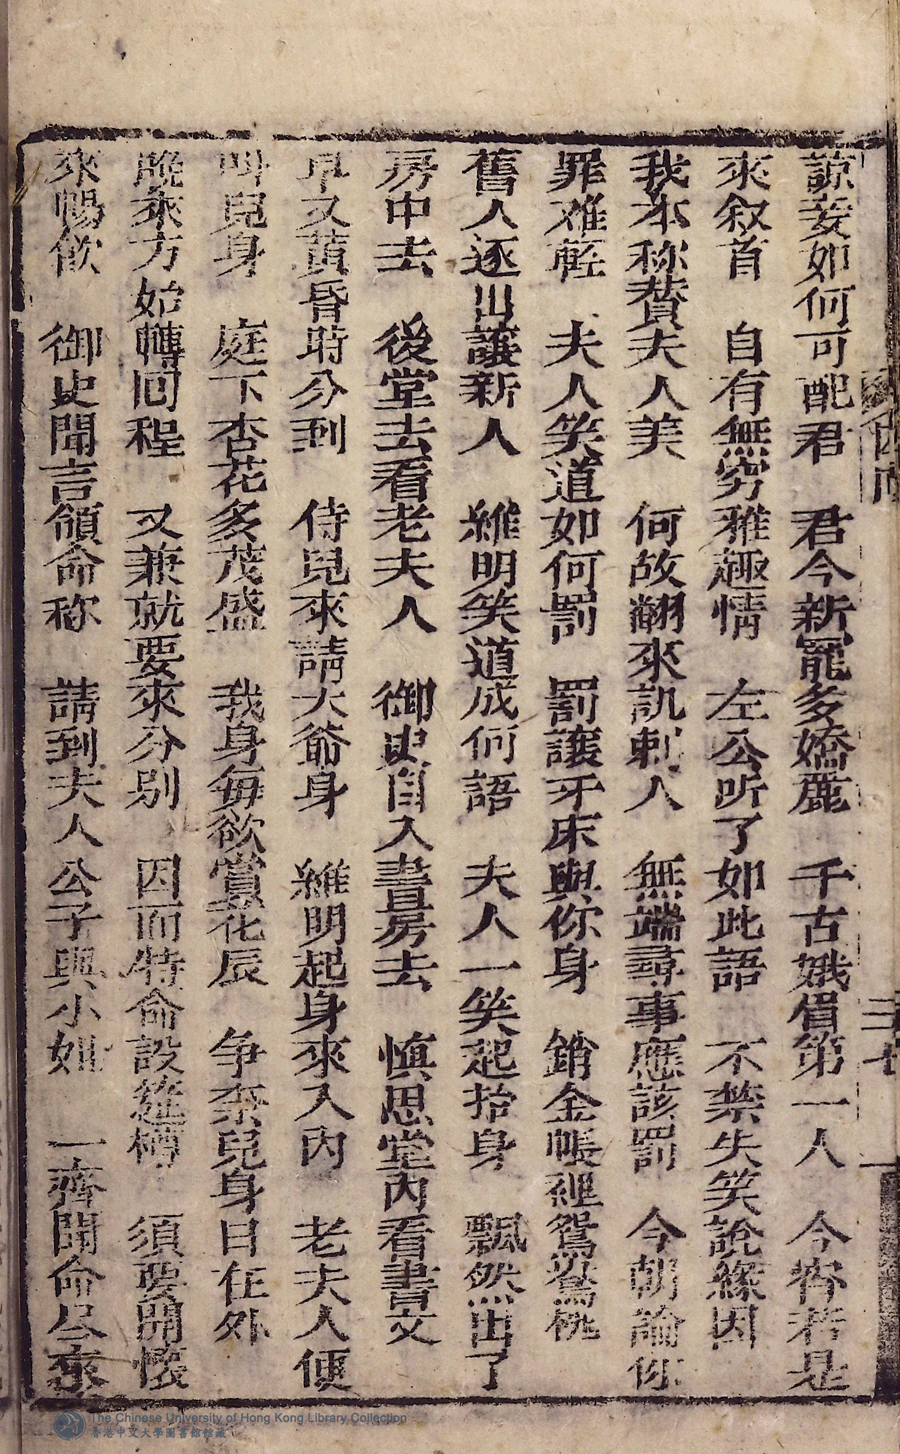 諒妾如何可配君　君今新寵多嬌麗　千古娥眉第一人　今宵若是
來叙首　自有無穷雅趣情　左公听了如此語　不禁失笑說緣因
我本称賛夫人美　何故翻來訊刺人　無端尋事應該罰　今朝論你
罪难輕　夫人笑道如何罰　罰讓牙床與你身　銷金帳裡鴛鴦枕
舊人逐出讓新人　維明笑道成何語　夫人一笑起抬身　飄然出了
房中去　後堂去看老夫人　御史自入書房去　慎思堂內看書文
早又黃昏時分到　侍兒來請大爺身　維明起身來入內　老夫人便
叫兒身　庭下杏花多茂盛　我身每欲賞花辰　争奈兒身日在外
晚來方始轉囘程　又兼就要來分别　因而特命設筵樽　須要開懷
來暢飲　御史聞言領命称　請到夫人公子與小姐　一齊開命尽來
三十七
The Chinese University of Hong Kong Library Collection
香港中文大學圖書館館藏